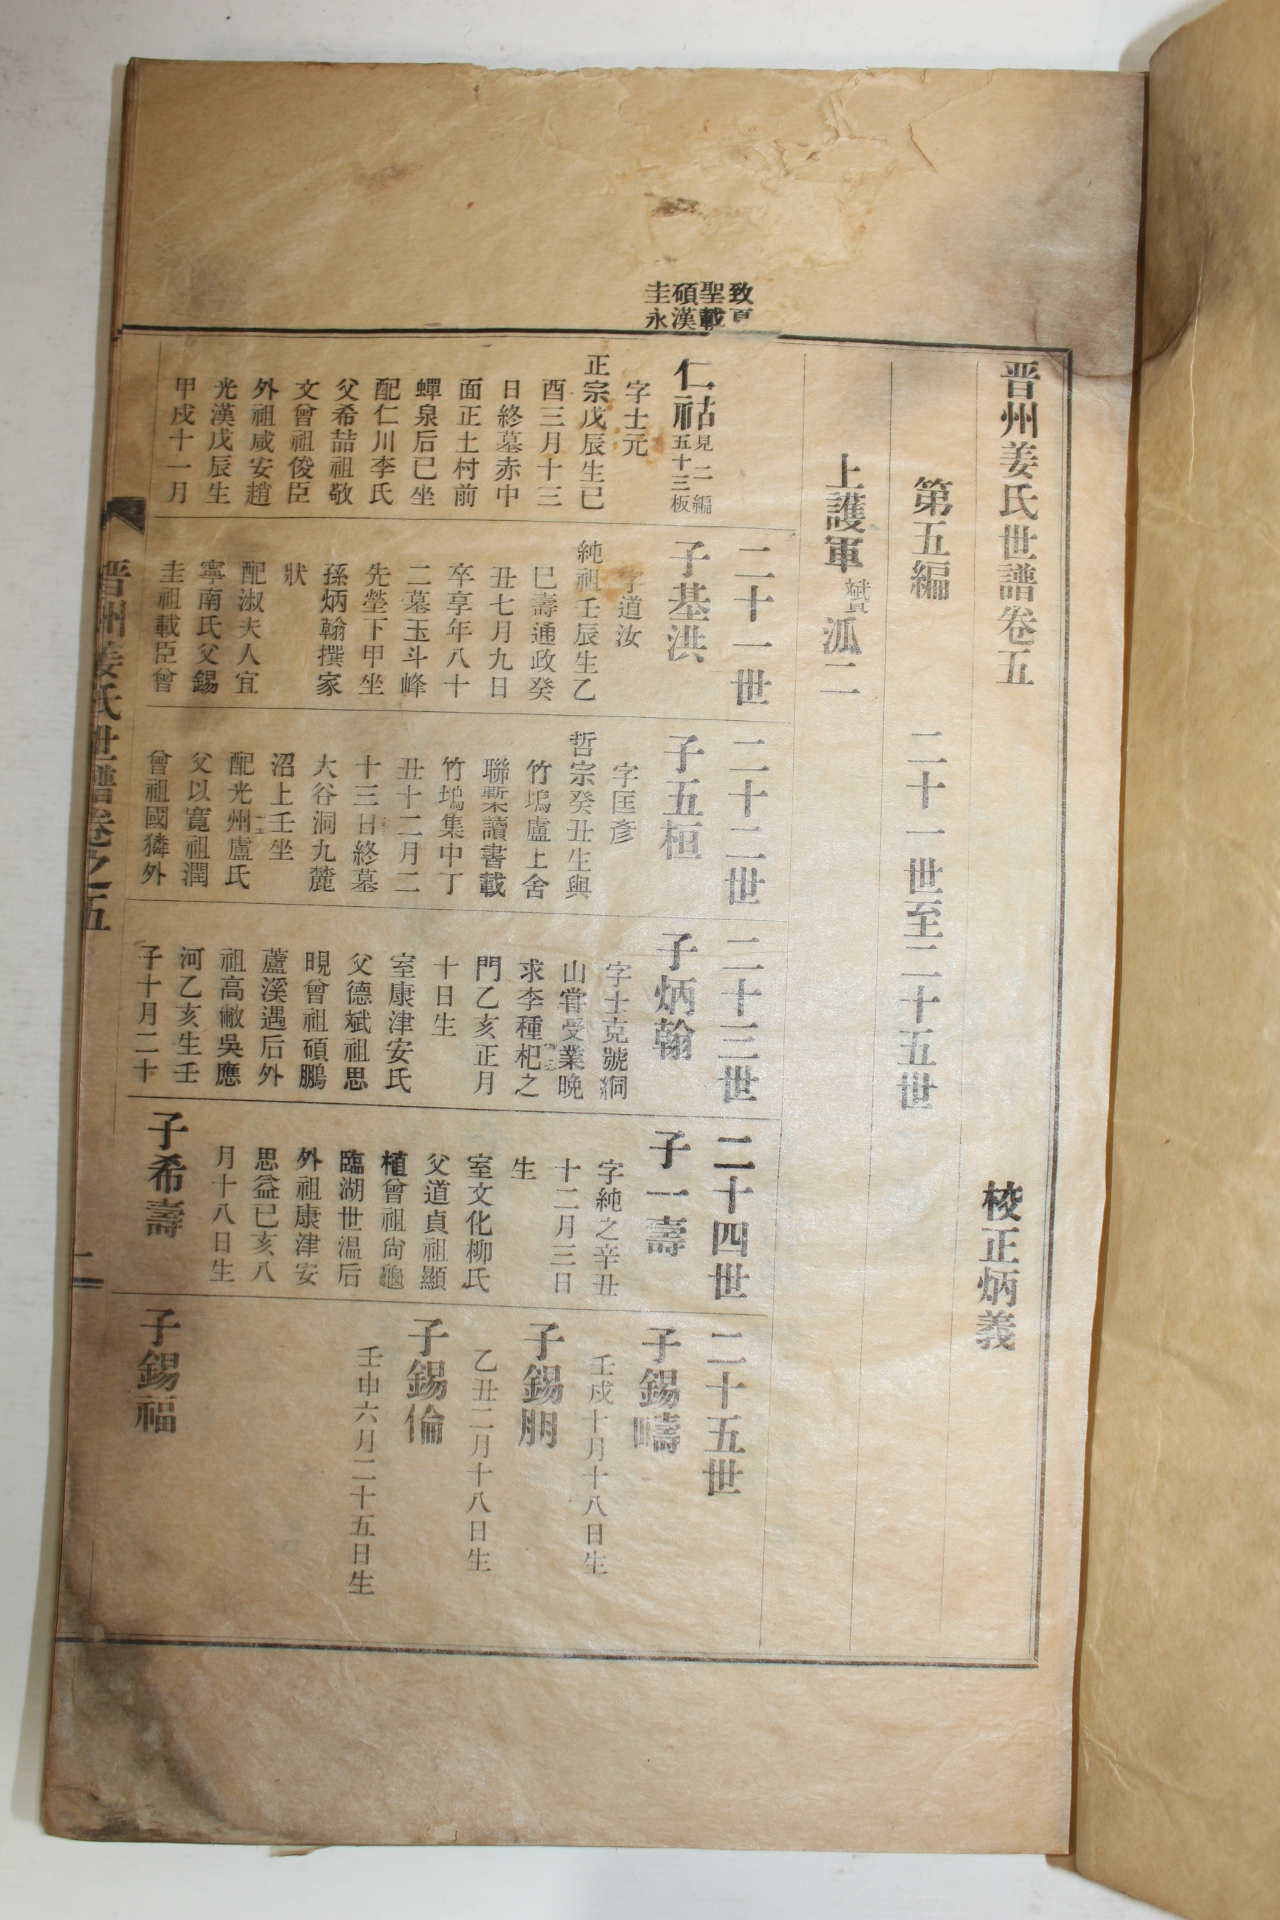 晋州姜氏世譜卷五
校正炳義
第五編
二十一世至二十五世
上護軍
派二
致
聖載
碩漢
圭永
仁祜
見二編
五十三板
字士元
正宗戊辰生已
酉三月十三
日終墓赤中
面正土村前
蟬泉后巳坐
配仁川李氏
父希喆祖敬
文曾祖俊臣
外祖咸安趙
光漢戊辰生
甲戌十一月
二十一世
子基洪
字道汝
純祖壬辰生乙
巳壽通政癸
丑七月九日
卒享年八十
二墓玉斗峰
先塋下甲坐
孫炳翰撰家
狀
配淑夫人宜
寧南氏父錫
圭祖載臣曾
二十二世
子五桓
字匡彥
哲宗癸丑生與
竹塢盧上舍
聯槧讀書載
竹塢集中丁
丑十二月二
十三日終墓
大谷洞九麓
沼上壬坐
配光州盧氏
父以寬祖潤
曾祖國獜外
二十三世
子炳翰
字士克號絅
山嘗受業晚
求李種杞之
門乙亥正月
十日生
室康津安氏
父德斌祖思
晛曾祖碩鵬
蘆溪遇后外
祖高敝吳應
河乙亥生壬
子十月二十
二十四世
子一壽
字純之辛丑
十二月三日
生
室文化柳氏
父道貞祖顯
植曾祖尙龜
臨湖世溫后
外祖康津安
思益已亥八
月十八日生
子希壽
二十五世
子錫疇
壬戌十月十八日生
子錫朋
乙丑二月十八日生
子錫倫
壬申六月二十五日生
子錫福
晋州姜氏世譜卷之五
一